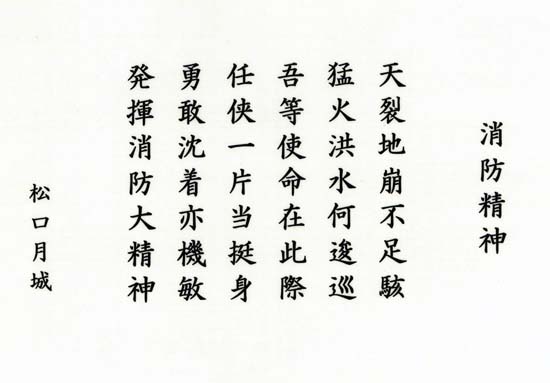 消防精神
天裂地崩不足駭
猛火洪水何逡巡
吾等使命在此際
任侠一片当挺身
勇敢沈着亦機敏
発揮消防大精神
松口月城